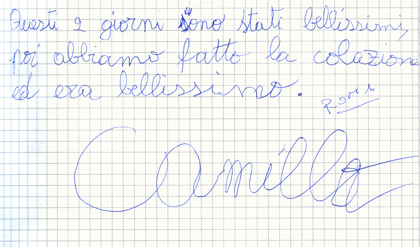 Questi 2 giorni sono stati bellissimi,
poi abbiamo fatto la colazione
ed era bellissimo.
Camilla